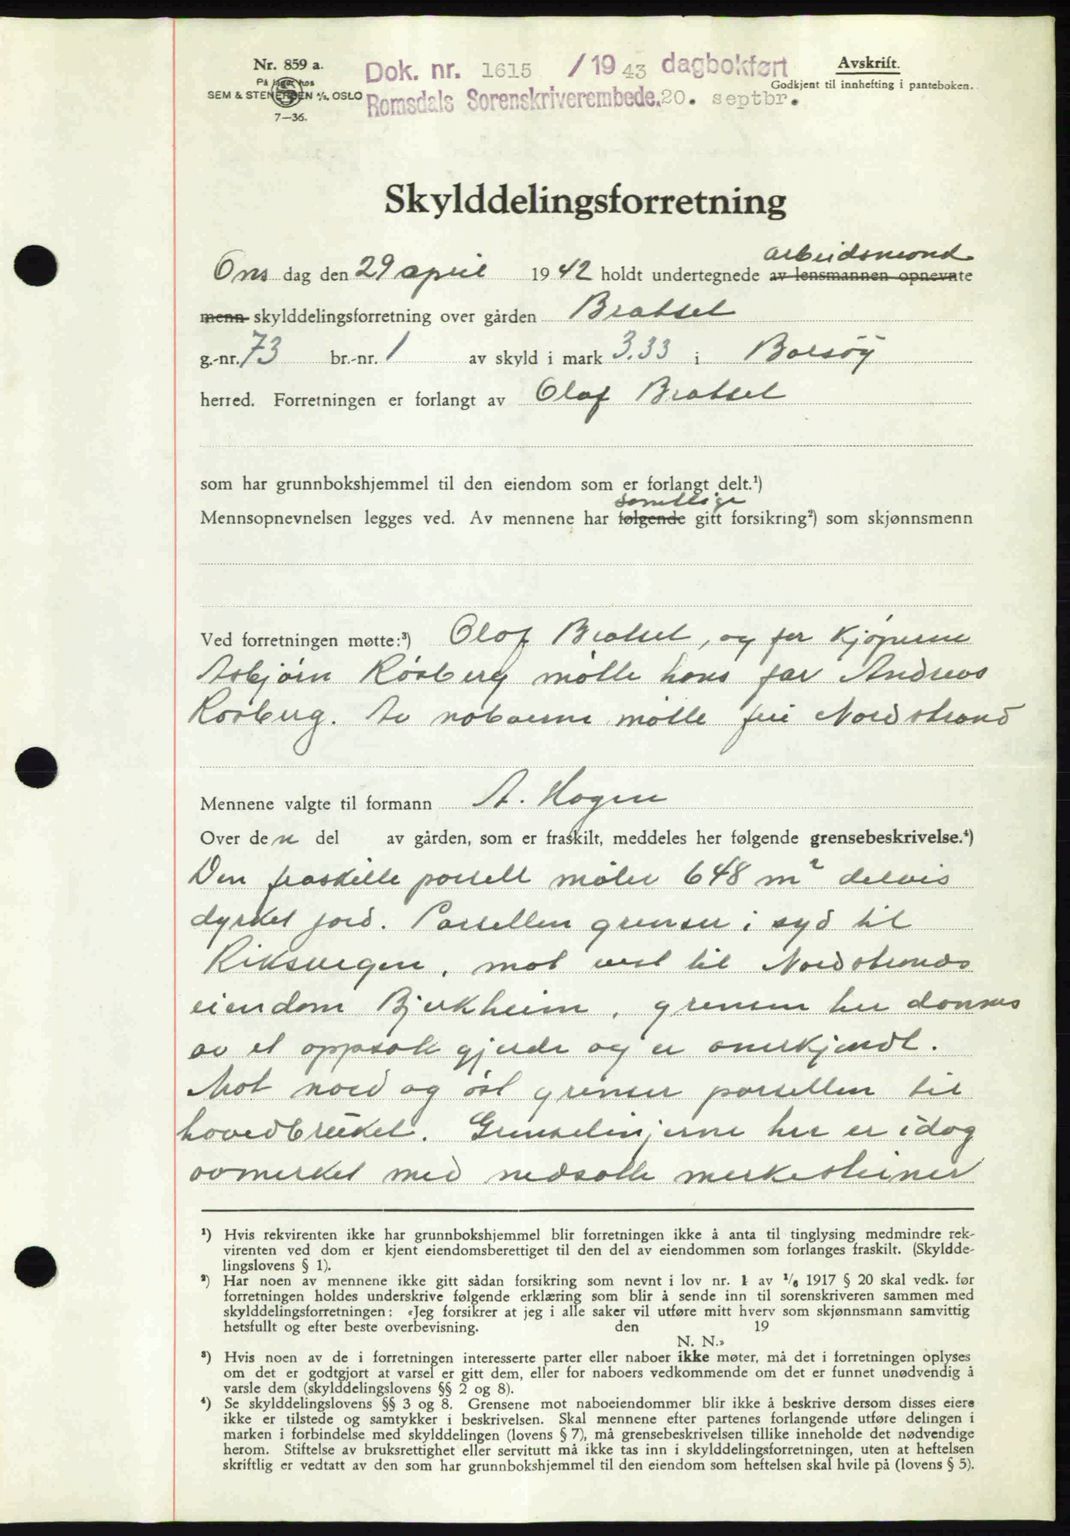 Nr. 859 a.
På lager hos
SEM & STENERSEN A/S, OSLO
7—36.
Dok. nr. 1615 /1943 dagbokført
Romsdals Sorenskriverembede. 20. septbr.
Avskrift.
Godkjent til innhefting i panteboken.
Skylddelingsforretning
arbeidsmond
Ons dag den 29 april 1942 holdt undertegnede av lensmannen opnevnte
menn skylddelingsforretning over gården Bratset
g.-nr. 73 br.-nr. 1 av skyld i mark 3.33 i Bolsøy
herred. Forretningen er forlangt av Olaf Bratset
som har grunnbokshjemmel til den eiendom som er forlangt delt.¹)
samtlige
Mennsopnevnelsen legges ved. Av mennene har følgende gitt forsikring²) som skjønnsmenn
Ved forretningen møtte:³) Olaf Bratset, og for kjøperen
Asbjørn Røsberg møtte hans far Andreas
Røsberg. Av naboerne møtte fru Nordstrand
Mennene valgte til formann A. Hagen
Over den del av gården, som er fraskilt, meddeles her følgende grensebeskrivelse.⁴)
Den fraskilte parsell måler 648 m² delvis
dyrket jord. Parsellen grenser i syd til
Riksvegen, mot vest til Nordstrands
eiendom Bjerkheim, grensen her dannes
av et oppsatt gjerde og er anerkjendt.
Mot nord og øst grenser parsellen til
hovedbruket. Grenselinjerne her er idag
avmerket med nedsatte merkesteiner
¹) Hvis rekvirenten ikke har grunnbokshjemmel blir forretningen ikke å anta til tinglysing medmindre rek-
virenten ved dom er kjent eiendomsberettiget til den del av eiendommen som forlanges fraskilt. (Skyldde-
lingslovens § 1).
²) Har noen av mennene ikke gitt sådan forsikring som nevnt i lov nr. 1 av 1/6 1917 § 20 skal vedk. før
forretningen holdes underskrive følgende erklæring som blir å sende inn til sorenskriveren sammen med
skylddelingsforretningen: «Jeg forsikrer at jeg i alle saker vil utføre mitt hverv som skjønnsmann samvittig
hetsfullt og efter beste overbevisning. den 19
N. N.»
³) Hvis noen av de i forretningen interesserte parter eller naboer ikke møter, må det i forretningen oplyses
om det er godtgjort at varsel er gitt dem, eller for naboers vedkommende om det er funnet unødvendig å
varsle dem (skylddelingslovens §§ 2 og 8).
⁴) Se skylddelingslovens §§ 3 og 8. Grensene mot naboeiendommer blir ikke å beskrive dersom disses eiere
ikke er tilstede og samtykker i beskrivelsen. Skal mennene efter partenes forlangende utføre delingen i
marken i forbindelse med skylddelingen (lovens § 7), må grensebeskrivelsen tillike inneholde det nødvendige
herom. Stiftelse av bruksrettighet eller servitutt må ikke tas inn i skylddelingsforretningen, uten at heftelsen
skriftlig er vedtatt av den som har grunnbokshjemmel til den eiendom som heftelsen skal hvile på (lovens § 5).